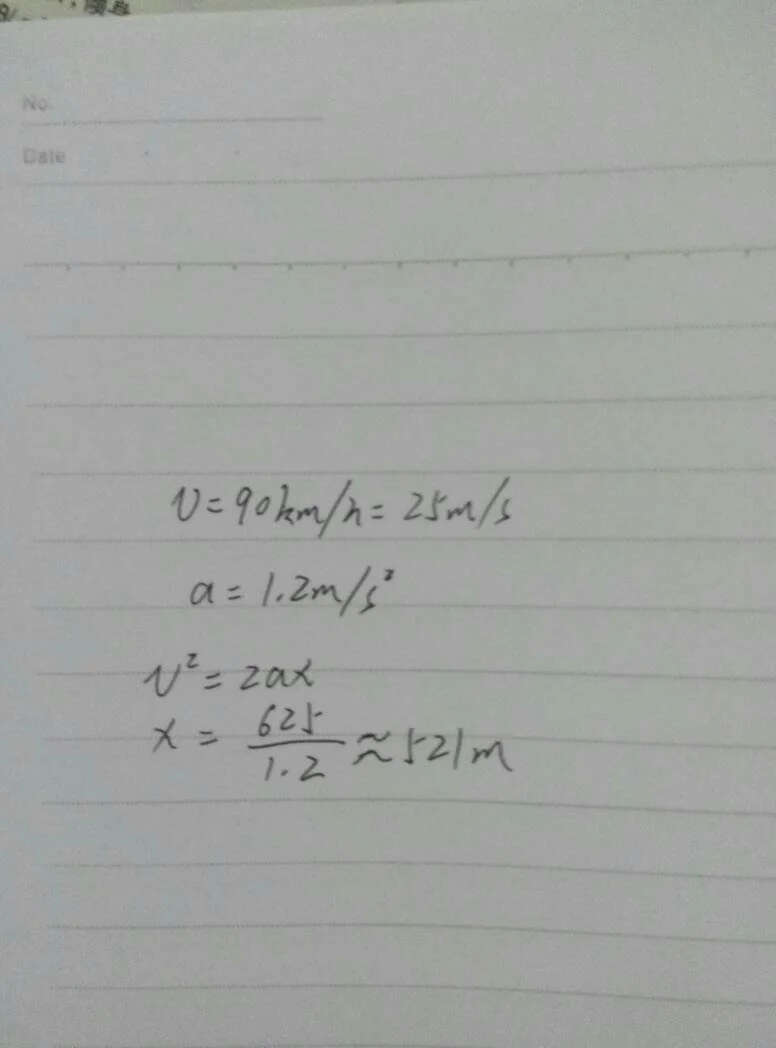 No.
Date
v=90km/h=25m/s
a=1.2m/s²
v²=2ax
x=625/1.2≈521m